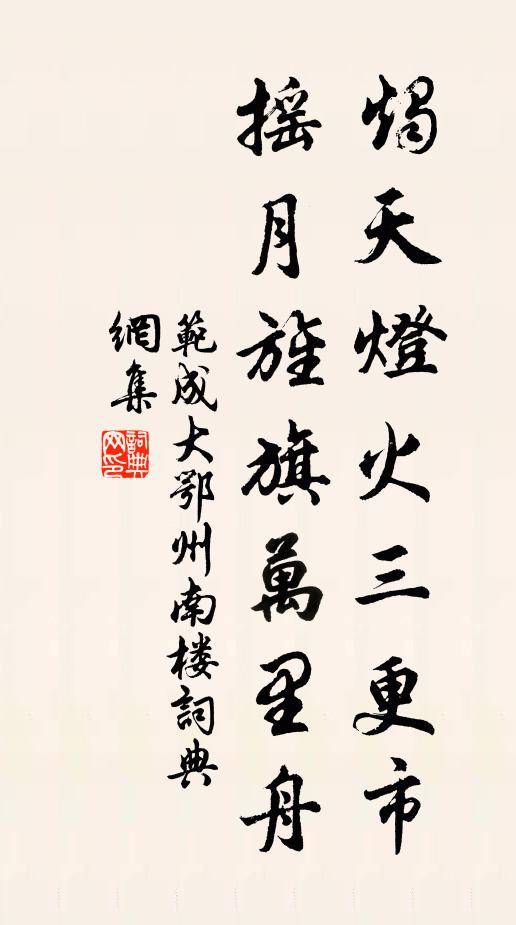 燭天燈火三更市
摇月旌旗萬里舟
範成大鄂州南楼詞典
網集
詞典网印